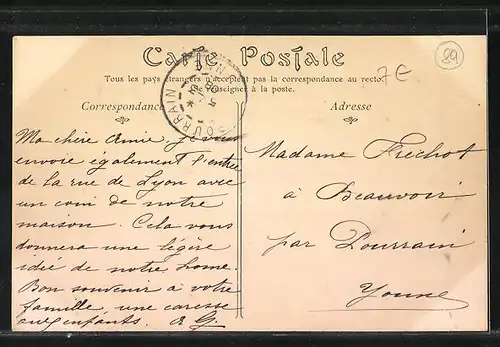 Carte Postale
Tous les pays étrangers n'acceptent pas la correspondance au recto.
Se renseigner à la poste.
Correspondance
Adresse
89
7 E
POURRAIN
Ma chère Amie je vous
envoie également l'entrée
de la rue de Lyon avec
un coin de notre
maison. Cela vous
donnera une légère
idée de notre home.
Bon souvenir à votre
famille, une caresse
aux enfants. G.
Madame Frechot
à Beauvoir
par Pourrain
Yonne